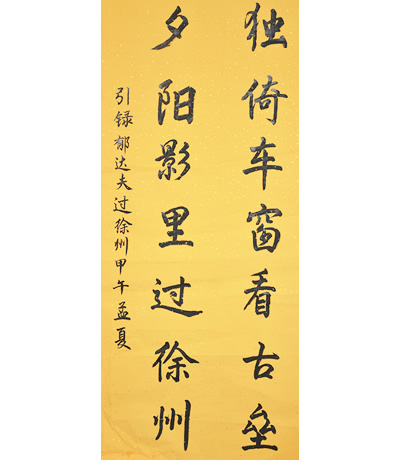 独倚车窗看古垒
夕阳影里过徐州
引录郁达夫过徐州甲午孟夏